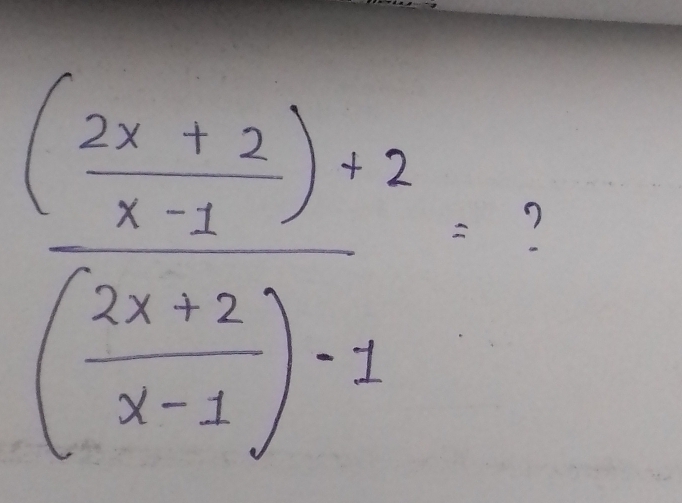 (2x + 2 / x - 1) + 2
= ?
(2x + 2 / x - 1) - 1